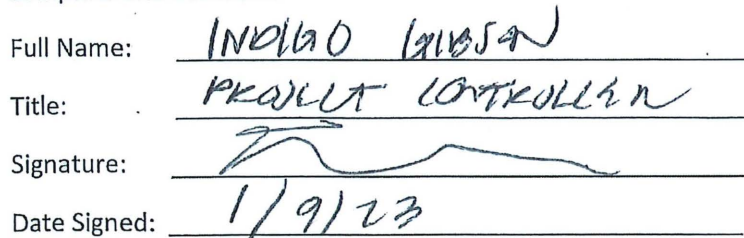 Full Name: INDIGO GIBSON
Title: PROJECT CONTROLLER
Signature:
Date Signed: 1/9/23